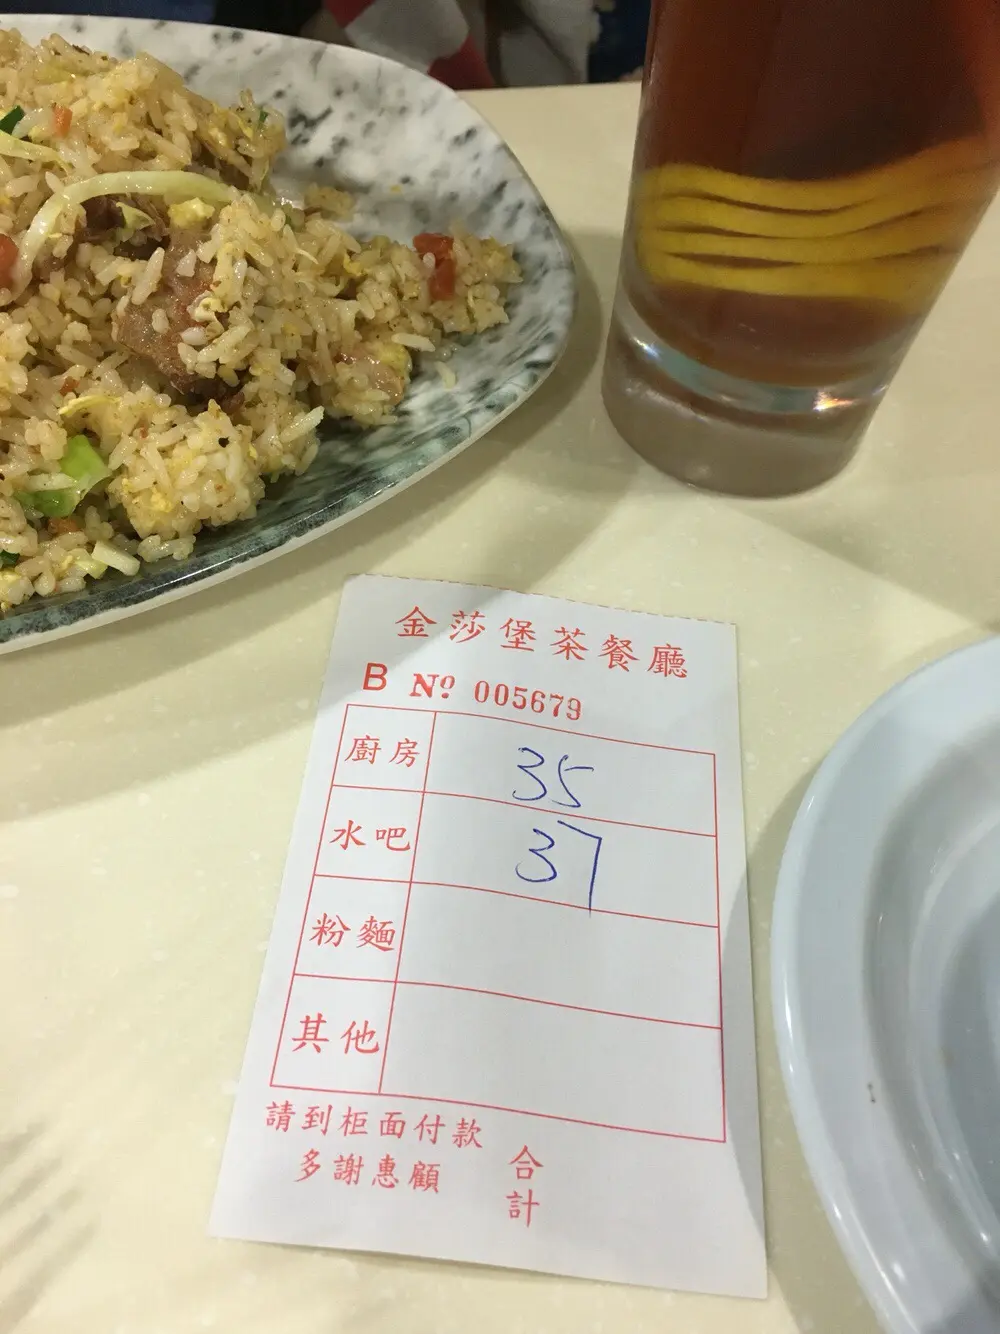 金莎堡茶餐廳
B Nº 005679
廚房 35
水吧 37
粉麵
其他
請到柜面付款
多謝惠顧
合計